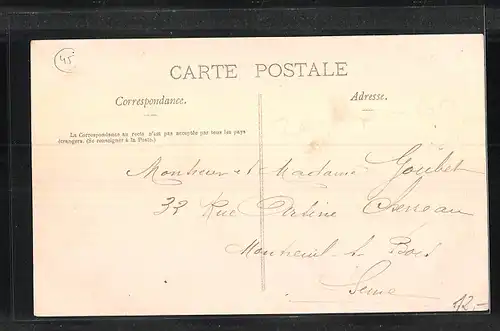 45
CARTE POSTALE
Correspondance.
Adresse.
La Correspondance au recto n'est pas acceptée par tous les pays
étrangers. (Se renseigner à la Poste.)
Monsieur et Madame Goubet
32 Rue
Montreuil s. Bois
Seine
12.-